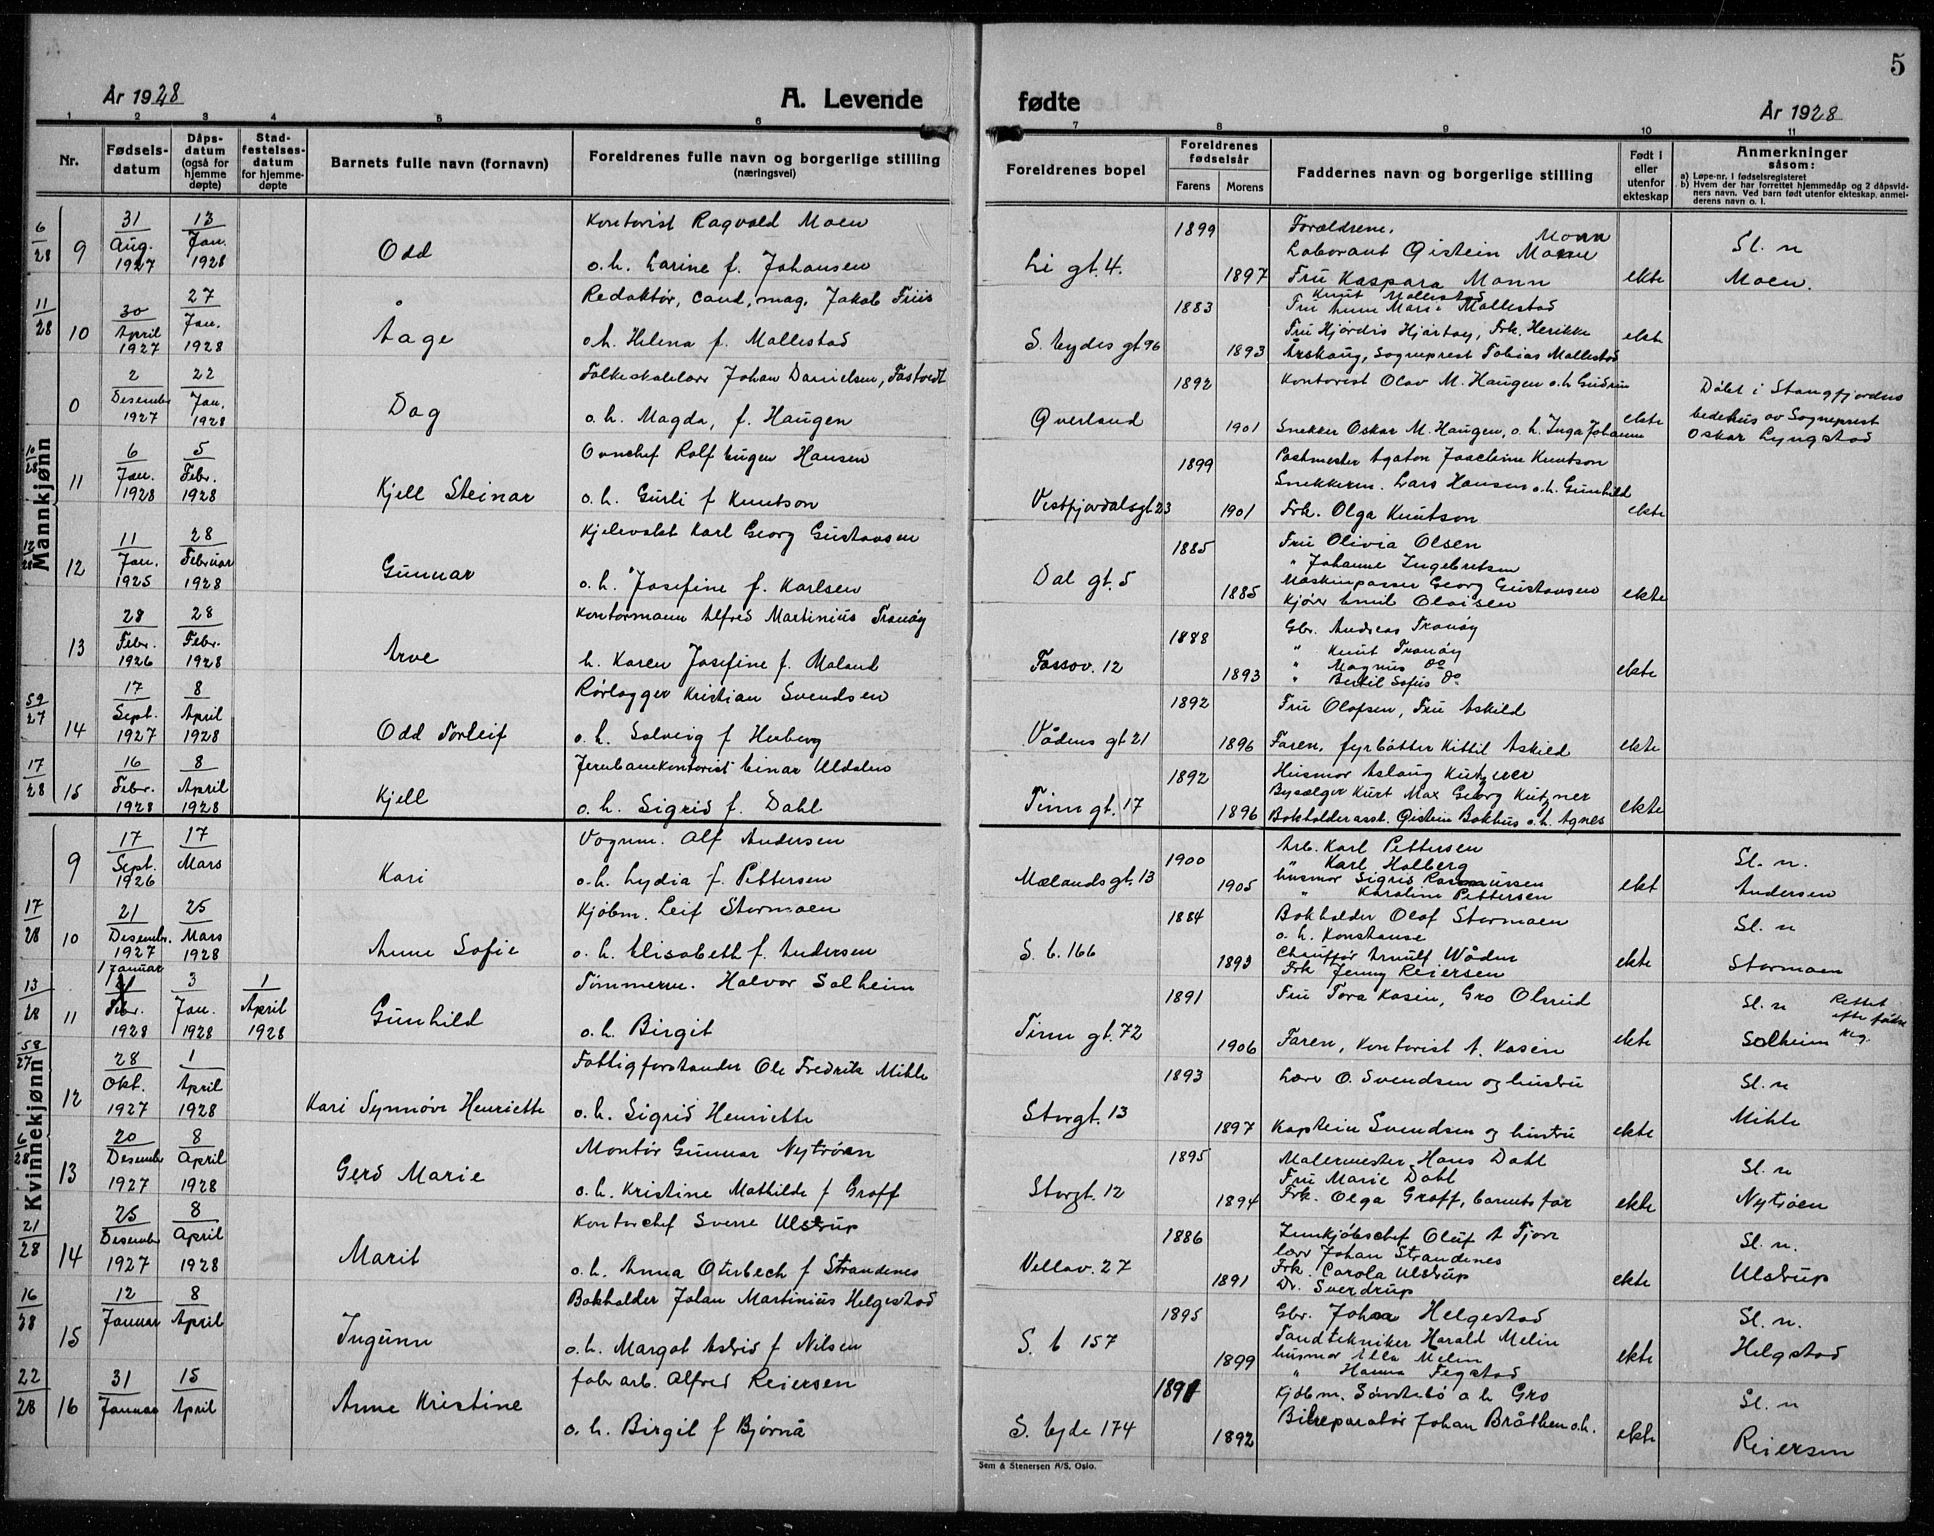 5
År 1928
A. Levende
fødte
År 1928
1 2 3 4 5 6 7 8 9 10 11
Nr.
Fødselsdatum
Dåpsdatum (også for hjemmedøpte)
Stadfestelsesdatum for hjemmedøpte
Barnets fulle navn (fornavn)
Foreldrenes fulle navn og borgerlige stilling (næringsvei)
Foreldrenes bopel
Foreldrenes fødselsår
Farens Morens
Faddernes navn og borgerlige stilling
Født i eller utenfor ekteskap
Anmerkninger
såsom:
a) Løpe-nr. i fødselsregisteret
b) Hvem der har forrettet hjemmedåp og 2 dåpsvidners navn. Ved barn født utenfor ekteskap, anmelderens navn o. l.
Mannkjønn
6/28 9 31 Aug. 1927 13 Jan. 1928 Odd
Kontorist Ragvald Moen
o. h. Larine f. Johansen
Li gt. 4. 1899 1897
Forældrene.
Laborant Øistein Monn
Fru Kaspara Monn
ekte
Sl. n
Moen.
11/28 10 30 April 1927 27 Jan. 1928 Aage
Redaktør, cand. mag. Jakob Friis
o. h. Helena f. Mallestad
S. Eydes gt 96 1883 1893
Knut Mallestad
Fru Anne Marie Mallestad
Fru Hjørdis Hjartøy, Frk. Herikke
Årskaug, Sogneprest Tobias Mallestad
ekte
0 2 Desember 1927 22 Jan. 1928 Dag
Folkeskolelærer Johan Danielsen, Fastvedt
o. h. Magda, f. Haugen
Øverland 1892 1901
Kontorist Olav M. Haugen o. h. Gudrun
Snekker Oskar M. Haugen, o. h. Inga Johanne
ekte
Døbt i Stangfjordens
bedehus av Sogneprest
Oskar Lyngstad
10/28 11 6 Jan. 1928 5 Febr. 1928 Kjell Steinar
Ovnchef Rolf Eugen Hansen
o. h. Gurli f Knutson
Vestfjordalsgt 23 1899 1901
Postmester Agaton Joachime Knutson
Snekkerm. Lars Hansen o. h. Gunhild
Frk. Olga Knutson
ekte
12/28 12 11 Jan. 1925 28 Februar 1928 Gunnar
Kjelevakt Karl Georg Gustavsen
o. h. Josefine f. Karlsen
Dal gt. 5 1885 1885
Fru Olivia Olsen
" Johanne Ingebretsen
Maskinpasser Georg Gustavsen
Kjørr Emil Olaisen
ekte
13 28 Febr. 1926 28 Febr. 1928 Arve
Kontormann Alfred Martinius Tranøy
h. Karen Josefine f. Maland
Fossov. 12 1888 1893
Gbr. Andreas Tranøy
" Knut Tranøy
" Magnus Do
" Bertil Sofus Do
ekte
59/27 14 17 Sept. 1927 8 April 1928 Odd Torleif
Rørlegger Kristian Svendsen
o. h. Solveig f Herberg
Vådens gt 21 1892 1896
Fru Olafsen, Fru Askild
Faren, fyrbøtter Kittil Askild
ekte
17/28 15 16 Febr. 1928 8 April 1928 Kjell
Jernbanekontorist Einar Uldalen
o. h. Sigrid f. Dahl
Tinn gt. 17 1892 1896
Husmor Aslaug Kutzner
Bysælger Kurt Max Georg Kutzner
Bokholderasst. Øistein Bakhus o. h. Agnes
ekte
Kvinnekjønn
9 17 Sept. 1926 17 Mars Kari
Vognm. Alf Andersen
o. h. Lydia f. Pettersen
Mælands gt. 13 1900 1905
Arb. Karl Pettersen
" Karl Holberg
husmor Sigrid Rasmussen
" Karoline Pettersen
ekt
Sl. n.
Andersen
17/28 10 21 Desembr. 1927 25 Mars 1928 Anne Sofie
Kjøbm. Leif Stormoen
o. h. Elisabeth f. Andersen
S. E. 166 1884 1893
Bokholder Olaf Stormoen
o. h. Konstanse
Chauffør Arnulf Wåden
Frk Jenny Reiersen
ekte
Sl. n
Stormoen
13/28 11 1 Januar Febr. 1928 3 Jan. 1928 1 April 1928 Gunhild
Tømmerm. Halvor Solheim
o. h. Birgit
Tinn gt. 72 1891 1906
Fru Tora Kasin, Gro Olsrud
Faren, Kontorist A. Kasin
ekte
Sl. n Rettet
efter føds
Solheim reg.
58/27 12 28 Okt. 1927 1 April 1928 Kari Synnøve Henriette
Fattigforstander Ole Fredrik Mihle
o. h. Sigrid Henriette
Storgt. 13 1893 1897
Lærer O. Svendsen og hustru
Kaptein Svendsen og hustru
ekte
Sl. n
Mihle
6/28 13 20 Desember 1927 8 April 1928 Gerd Marie
Montør Gunnar Nytrøen
o. h. Kristine Mathilde f Groff
Storgt. 12 1895 1894
Malermester Hans Dahl
Fru Marie Dahl
Frk. Olga Groff, barnets far
ekte
Sl. n
Nytrøen
21/28 14 25 Desember 1927 8 April 1928 Marit
Kontorchef Sverre Ulstrup
o. h. Anna Oterbech f Strandenes
Vellav. 27 1886 1891
Innkjøbschef Oluf A Tjorr
lærer Johan Strandenes
Frk. Carola Ulstrup
Dr. Sverdrup
ekte
Sl. n.
Ulstrup
16/28 15 12 Januar 8 April Ingunn
Bokholder Johan Martinius Helgestad
o. h. Margot Astrid f Nilsen
S. E 157 1895 1899
Gbr. Johan Helgestad
Tandtekniker Harald Melin
husmor Ella Melin
" Hanna Fegstad
ekte
Sl. n.
Helgstad
22/28 16 31 Januar 15 April Anne Kristine
fabr arb. Alfred Reiersen
o. h. Birgit f Bjørnå
S. Eyde 174 1891 1892
Kjøbm. Søntebø o h Gro
Bilreparatør Johan Bråthen o. h.
ekte
Sl. n
Reiersen
Sem & Stenersen A/S, Oslo.